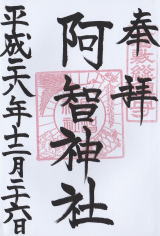 奉拝
阿智神社
平成二八年十二月二十六日